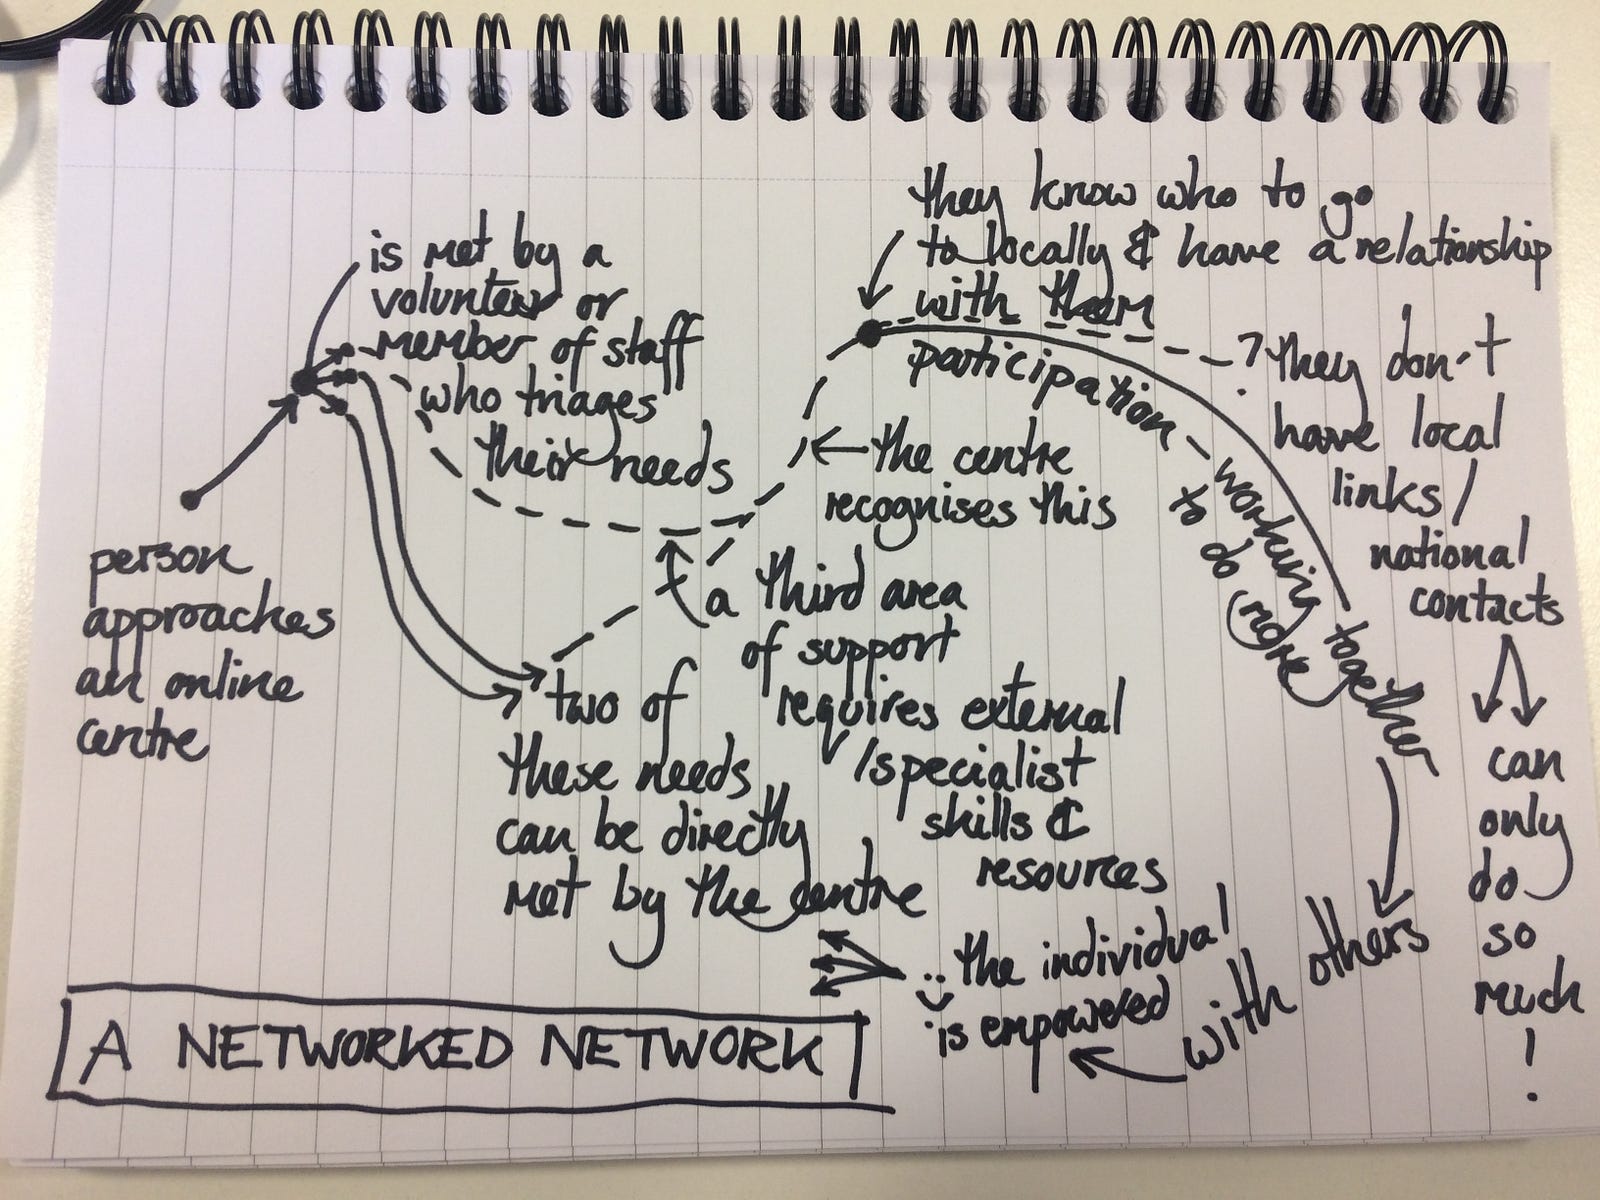 person
approaches
an online
centre
is met by a
volunteer or
member of staff
who triages
their needs
two of
these needs
can be directly
met by the centre
a third area
of support
requires external
/specialist
skills &
resources
the centre
recognises this
they know who to go
to locally & have a relationship
with them
participation - working together
to do more
with others
the individual
is empowered
? they don't
have local
links/
national
contacts
can
only
do
so
much
!
A NETWORKED NETWORK